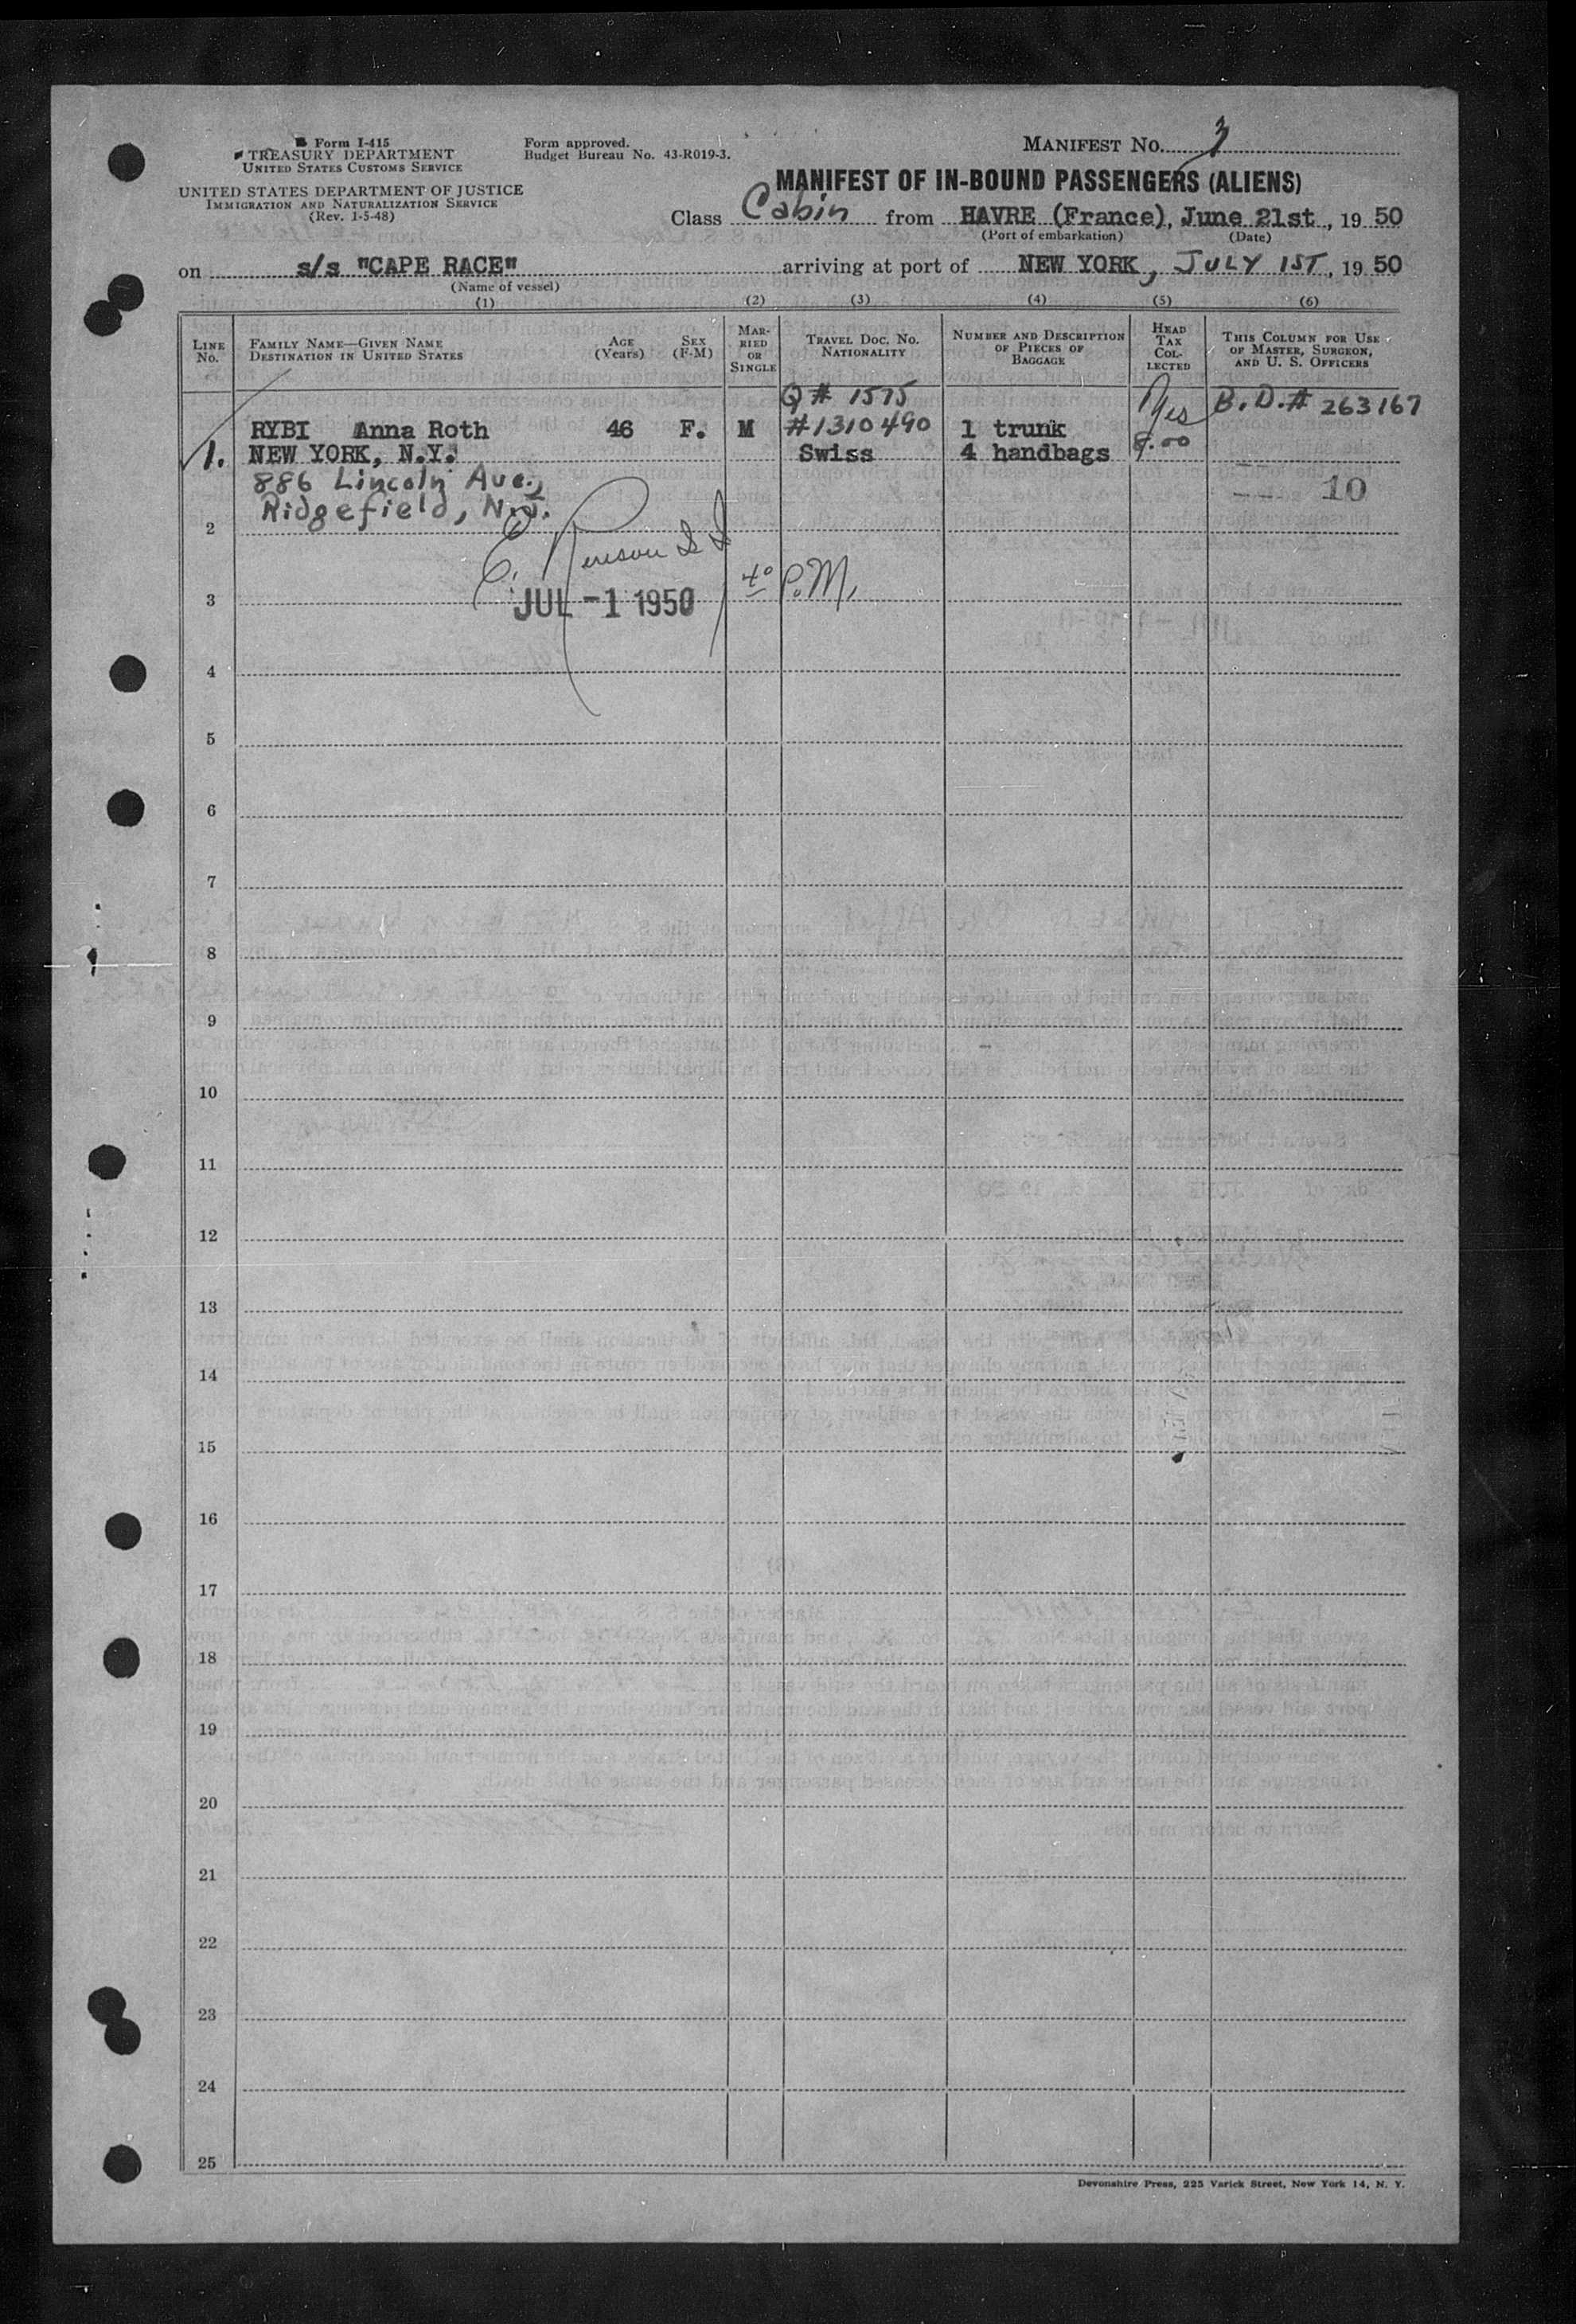 Form I-415
TREASURY DEPARTMENT
UNITED STATES CUSTOMS SERVICE
UNITED STATES DEPARTMENT OF JUSTICE
IMMIGRATION AND NATURALIZATION SERVICE
(Rev. 1-5-48)
Form approved.
Budget Bureau No. 43-R019-3.
MANIFEST NO. 3
MANIFEST OF IN-BOUND PASSENGERS (ALIENS)
Class Cabin from HAVRE (France), June 21st, 1950
(Port of embarkation) (Date)
on s/s "CAPE RACE" arriving at port of NEW YORK, JULY 1ST, 1950
(Name of vessel)
(1) (2) (3) (4) (5) (6)
LINE NO.
FAMILY NAME—GIVEN NAME
DESTINATION IN UNITED STATES
AGE (Years)
SEX (F-M)
MARRIED OR SINGLE
TRAVEL DOC. NO.
NATIONALITY
NUMBER AND DESCRIPTION OF PIECES OF BAGGAGE
HEAD TAX COLLECTED
THIS COLUMN FOR USE OF MASTER, SURGEON, AND U. S. OFFICERS
Q # 1575 Yes B.D.# 263167
RYBI Anna Roth 46 F. M #1310490 1 trunk
1. NEW YORK, N.Y. Swiss 4 handbags 8.00
886 Lincoln Ave., 10
Ridgefield, N.J.
2
3 JUL -1 1950 P.M.
4
5
6
7
8
9
10
11
12
13
14
15
16
17
18
19
20
21
22
23
24
25
Devonshire Press, 225 Varick Street, New York 14, N. Y.